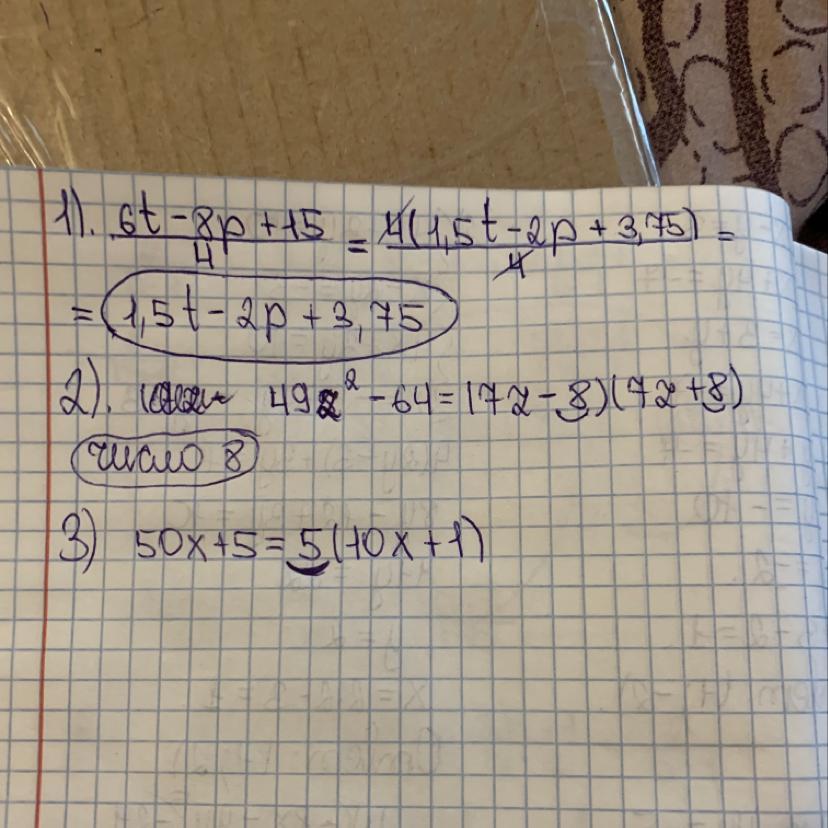 1). (6t - 8p + 15)/4 = 4(1,5t - 2p + 3,75)/4 =
= 1,5t - 2p + 3,75
2). 49z² - 64 = (7z - 8)(7z + 8)
число 8
3) 50x + 5 = 5(10x + 1)